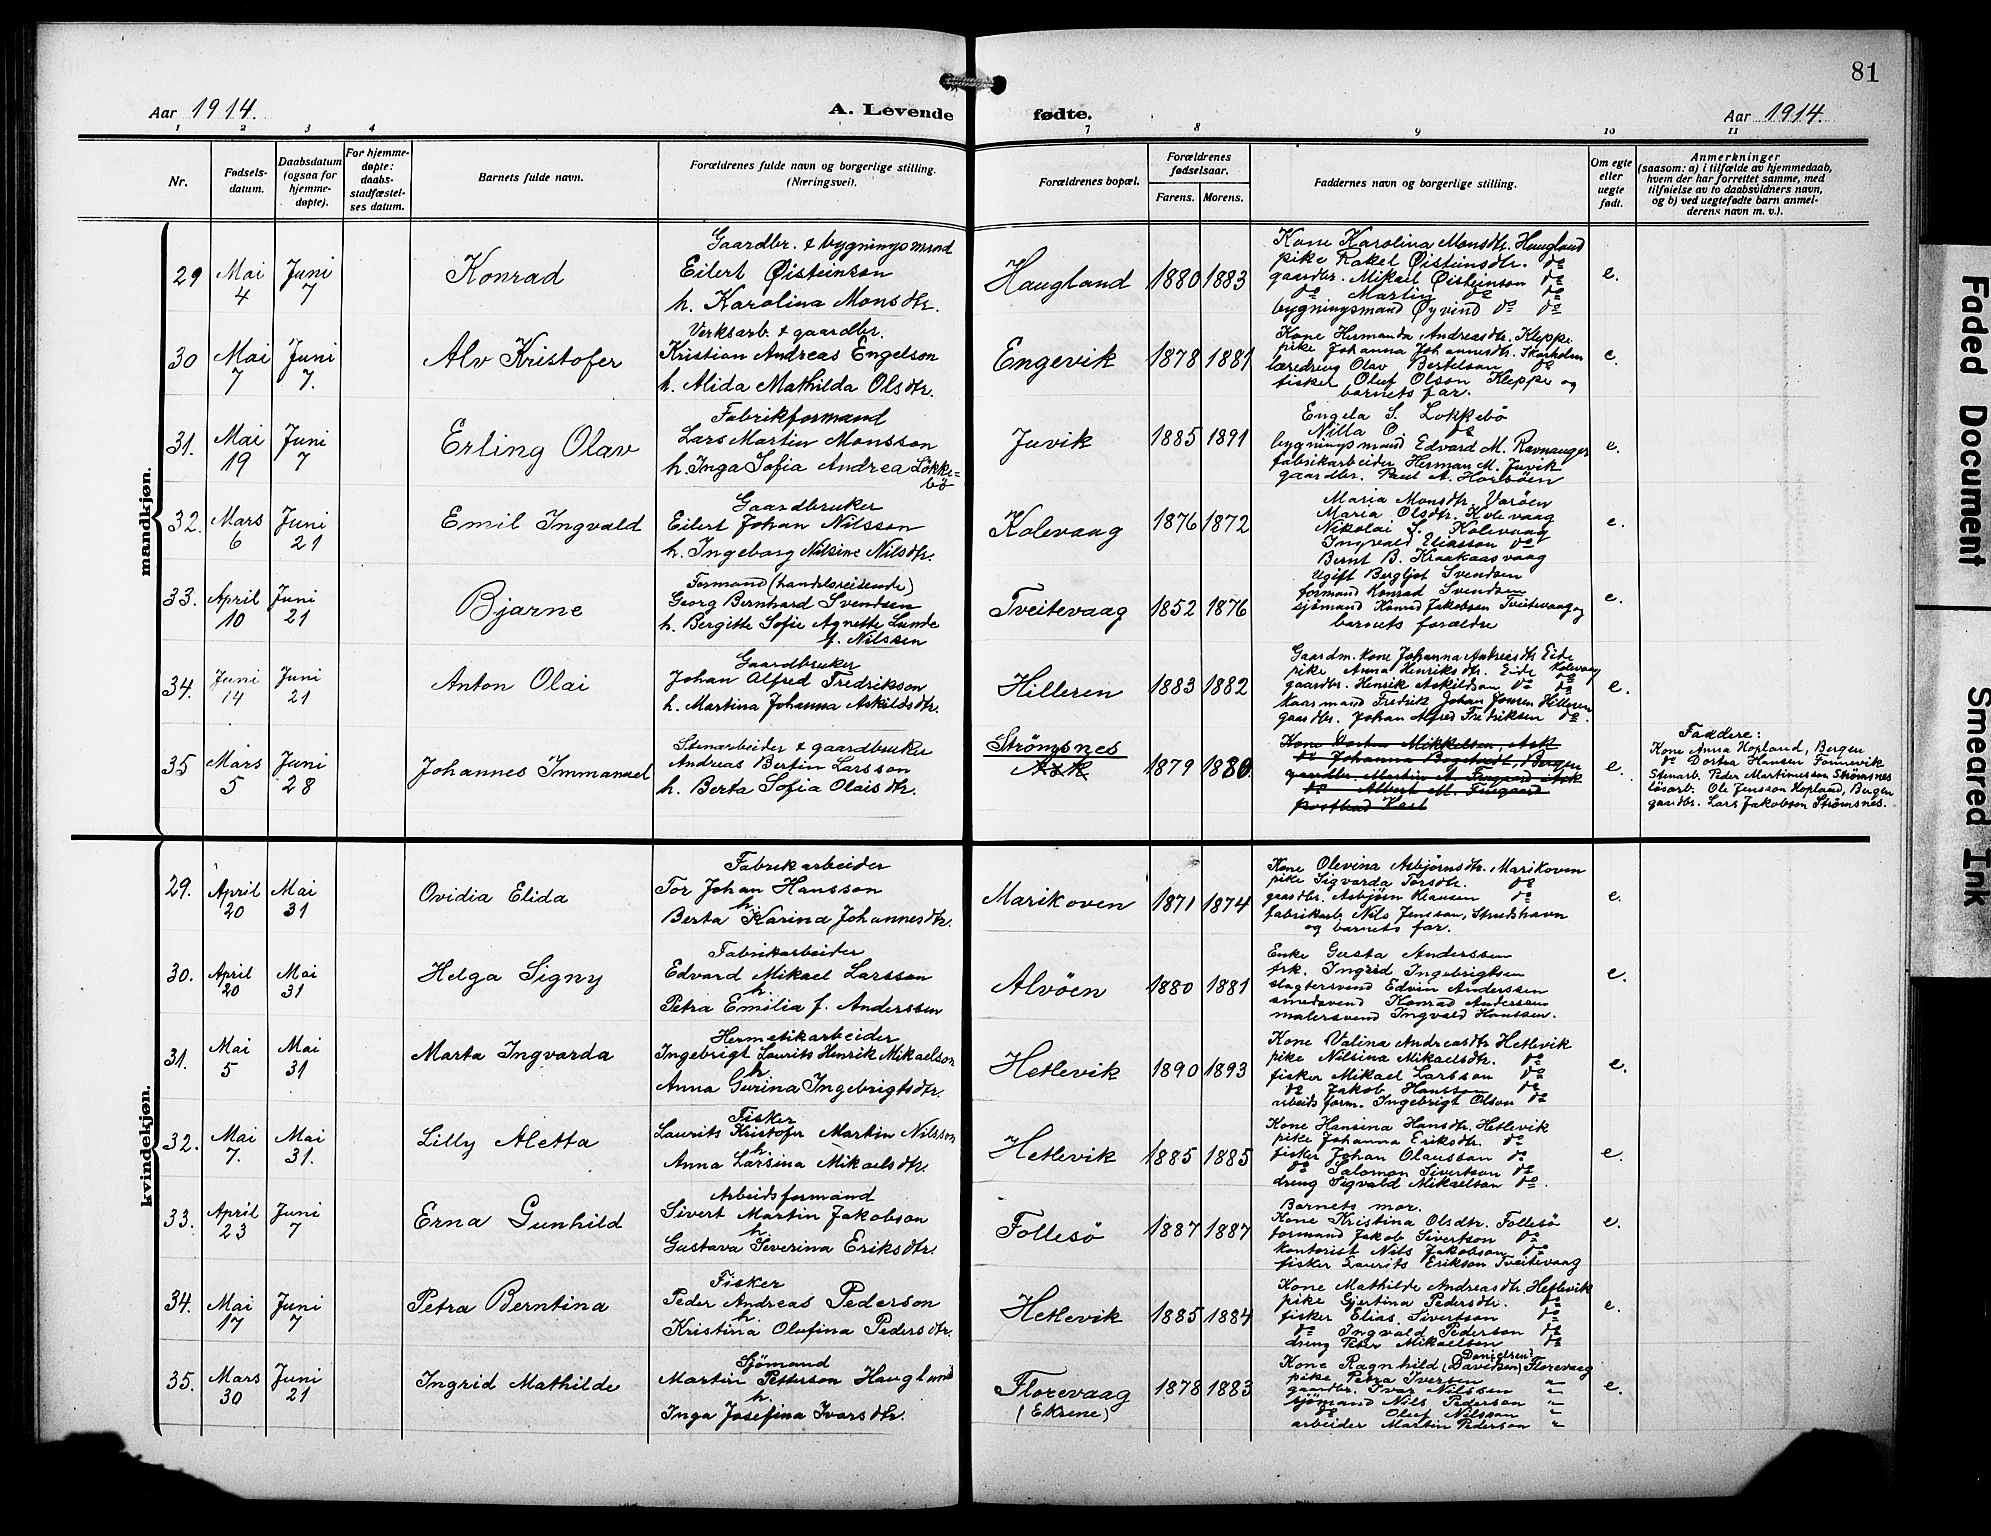 81
Aar 1914.
A. Levende fødte.
Aar 1914.
1 2 3 4 7 8 9 10 11
Nr.
Fødsels-
datum.
Daabsdatum
(ogsaa for
hjemme-
døpte).
For hjemme-
døpte:
daabs-
stadfæstel-
ses datum.
Barnets fulde navn.
Forældrenes fulde navn og borgerlige stilling.
(Næringsvei).
Forældrenes bopæl.
Forældrenes
fødselsaar.
Farens. Morens.
Faddernes navn og borgerlige stilling.
Om egte
eller
uegte
født.
Anmerkninger
(saasom: a) i tilfælde av hjemmedaab,
hvem der har forrettet samme, med
tilføielse av to daabsvidners navn,
og b) ved uegtefødte barn anmel-
derens navn m. v.).
mandkjøn.
29
Mai
4
Juni
7
Konrad
Gaardbr. & bygningsmand
Eilert Øisteinson
h. Karolina Monsdtr.
Haugland
1880 1883
Kone Karolina Monsdtr. Haugland
pike Rakel Øisteinsdtr. do
gaardbr. Mikael Øisteinson do
do Martin do do
bygningsmand Øyvind do do
e.
30
Mai
7
Juni
7.
Alv Kristofer
Verksarb. & gaardbr.
Kristian Andreas Engelson
h. Alida Mathilda Olsdtr.
Engevik
1878 1881
Kone Hermanda Andreasdtr. Kleppe
pike Johanna Johannesdtr. Skarholm
læredreng Olav Bertelson do
fisker Oluf Olson Kleppe og
barnets far.
e.
31.
Mai
19
Juni
7
Erling Olav
Fabrikformand
Lars Martin Monsson
h. Inga Sofia Andrea Løkke-
bø
Juvik
1885 1891
Engela S. Løkkebø
Nilla O. do
bygningsmand Edvard M. Ravnanger
fabrikarbeider Herman M. Juvik
gaardbr. Paul A. Horbøen
e.
32.
Mars
6
Juni
21
Emil Ingvald
Gaardbruker
Eilert Johan Nilsson
h. Ingeborg Nilsine Nilsdtr.
Kolevaag
1876 1872
Maria Monsdtr. Varøen
Maria Olsdtr. Kolevaag
Nikolai S. Kolevaag
Ingvald Eliasson do
Bernt B. Kraakaasvaag
e.
33.
April
10
Juni
21
Bjarne
Formand (handelsreisende)
Georg Bernhard Svendsen
h. Bergitte Sofie Agnette Lunde
f. Nilssen
Tveitevaag
1852 1876
Ugift Bergljot Svendsen
formand Konrad Svendsen
sjømand Konrad Jakobsen Tveitevaag og
barnets forældre
e.
34.
Juni
14
Juni
21
Anton Olai
Gaardbruker
Johan Alfred Fredrikson
h. Martina Johanna Askildsdtr.
Hilleren
1883 1882
Gaardm. kone Johanna Andreasdtr. Eide
pike Anna Henriksdtr. Eide Kolevaag
gaardbr. Henrik Askildson do do
kaarmand Fredrik Johan Jonsen Hilleren
gaardbr. Johan Alfred Fredriksen do
e.
35
Mars
5
Juni
28
Johannes Immanuel
Stenarbeider & gaardbruker
Andreas Bertin Larsson
h. Berta Sofia Olaisdtr.
Strømsnes
Ask
1879 1880.
Kone Dortea Mikkelsen, Ask
do Johanna Bogstadt, Bergen
gaardbr. Martin A. Ask
do Albert M.
e.
Faddere:
Kone Anna Hopland, Bergen
do Dortea Hansen Fonnevik
Stenarb. Peder Martinusson Strømsnes
løsarb. Ole Jensson Hopland, Bergen
gaardbr. Lars Jakobson Strømsnes.
kvindekjøn.
29.
April
20
Mai
31
Ovidia Elida
Fabrikarbeider
Tor Johan Hansson
h.
Berta Karina Johannesdtr.
Marikoven
1871 1874
Kone Olevina Asbjørnsdtr. Marikoven
pike Sigvarda Torsdtr. do
gaardbr. Asbjørn Klausen do
fabrikarb. Nils Jensson, Strudshavn
og barnets far.
e.
30.
April
20
Mai
31
Helga Signy
Fabrikarbeider
Edvard Mikael Larsson
h.
Petra Emilia f. Anderssen
Alvøen
1880 1881
Enke Gusta Anderssen
frk. Ingrid Ingebrigtsen
slagtersvend Edvin Anderssen
smedsvend Konrad Anderssen
malersvend Ingvald Hanssen.
e.
31.
Mai
5
Mai
31
Marta Ingvarda
Hermetikarbeider
Ingebrigt Laurits Henrik Mikaelson
h.
Anna Gurina Ingebrigtsdtr.
Hetlevik
1890 1893
Kone Valina Andreasdtr Hetlevik
pike Nilsina Mikaelsdtr. do
fisker Mikael Larsson do
do Jakob Hansson do
arbeidsform. Ingebrigt Olson do
e.
32.
Mai
7.
Mai
31.
Lilly Aletta
Fisker
Laurits Kristofer Martin Nilsson
h.
Anna Larsina Mikaelsdtr.
Hetlevik
1885 1885
Kone Hansina Hansdtr. Hetlevik
pike Johanna Eriksdtr. do
fisker Johan Olausson do
do Salomon Sivertson do
dreng Sigvald Mikaelson do.
e.
33.
April
23
Juni
7
Erna Gunhild
Arbeidsformand
Sivert Martin Jakobson
h.
Gustava Severina Eriksdtr.
Follesø
1887 1887
Barnets mor.
Kone Kristina Olsdtr. Follesø
formand Jakob Sivertson do
kontorist Nils Jakobson do
fisker Laurits Erikson Tveitevaag
e.
34.
Mai
17
Juni
7
Petra Berntina
Fisker
Peder Andreas Pederson
h.
Kristina Olufina Pedersdtr.
Hetlevik
1885 1884
Kone Mathilde Andreasdtr. Hetlevik
pike Gjertina Pedersdtr. do
fisker Elias Sivertson do
do Ingvald Pederson do
dreng Peter Mikaelson do
e.
35.
Mars
30
Juni
21
Ingrid Mathilde
Sjømand
Martin Petterson Haugland
h.
Inga Josefina Ivarsdtr.
Florevaag
(Ekrene)
1878 1883
Danielsen?
Kone Ragnhild (Davidsen) Florevaag
pike Petra Iversen "
gaardbr. Ivar Nilssen "
sjømand Nils Pederson "
do Oluf Nilsson "
arbeider Martin Pederson "
e.
Faded Document
Smeared Ink